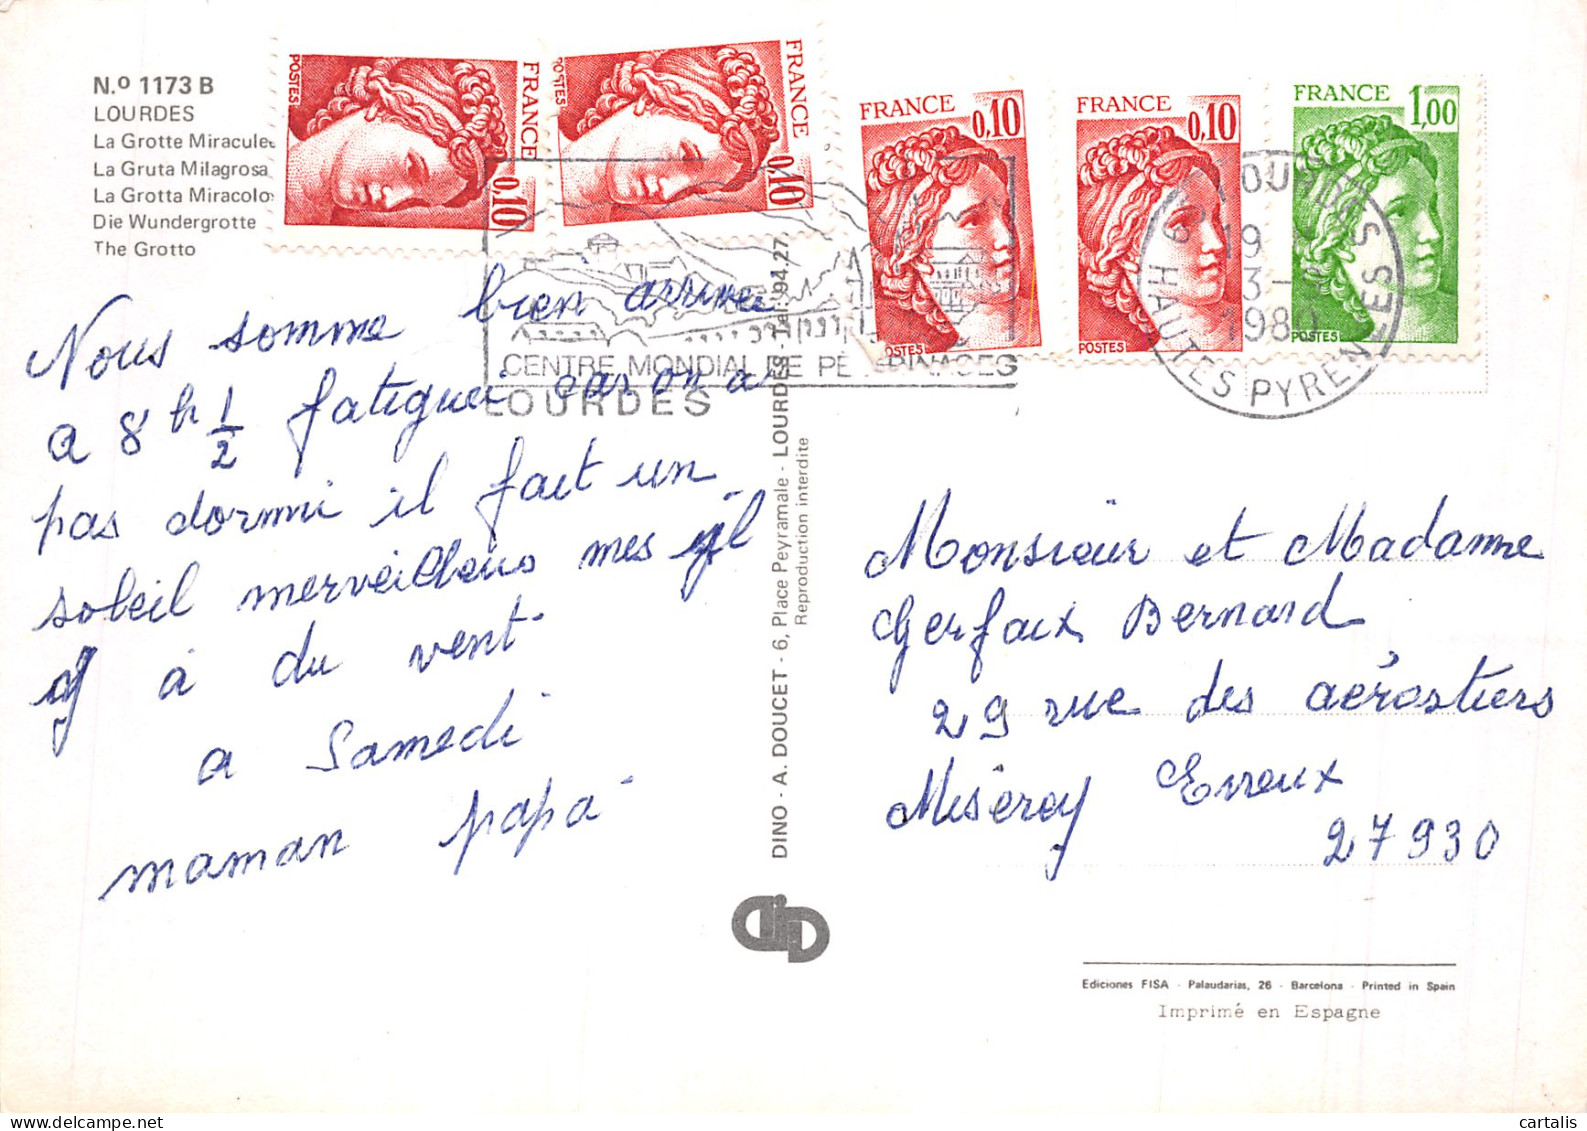 N.º 1173 B
LOURDES
La Grotte Miracule
La Gruta Milagrosa
La Grotta Miracolo
Die Wundergrotte
The Grotto
POSTES
FRANCE
0,10
POSTES
FRANCE
0,10
FRANCE
0,10
POSTES
FRANCE
0,10
POSTES
FRANCE
1,00
POSTES
CENTRE MONDIAL DE PELERINAGES
LOURDES
LOURDES
19
1980
HAUTES PYRENEES
Nous somme bien arrive
a 8 h 1/2 fatiguer car on a
pas dormi il fait un
soleil merveilleus mes il
y a du vent
a Samedi
maman papa
DINO - A. DOUCET - 6, Place Peyramale - LOURDES - Tel. 94.27
Reproduction interdite
Monsieur et Madame
Gerfaux Bernard
29 rue des aérostiers
Misérey Evreux
27930
Ediciones FISA - Palaudarias, 26 - Barcelona - Printed in Spain
Imprimé en Espagne
cartalis